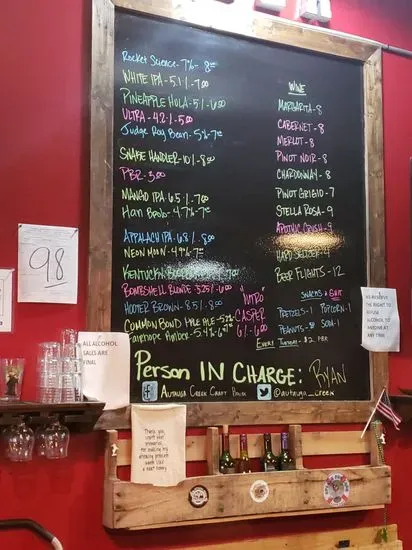 Rocket Science - 7% - 8.00
WHITE IPA - 5.1% - 7.00
PINEAPPLE HULA - 5% - 6.00
ULTRA - 4.2% - 5.00
Judge Roy Bean - 5% - 7.00
SNAKE HANDLER - 10% - 8.00
PBR - 3.00
MANGO IPA - 6.5% - 7.00
Han Brolo - 4.7% - 7.00
APPALACH IPA - 6.8% - 8.00
NEON MOON - 4.9% - 7.00
KENTUCKY 7.00
BOMBSHELL BLONDE - 5.25% - 6.00
HOOTER BROWN - 8.5% - 8.00
COMMON BOND PALE ALE - 5.2%
Fairhope Amber - 5.4%
WINE
MARGARITA - 8
CABERNET - 8
MERLOT - 8
PINOT NOIR - 8
CHARDONNAY - 8
PINOT GRIGIO - 7
STELLA ROSA - 9
APOTHIC CRUSH - 9
HARD SELTZER - 4
BEER FLIGHTS - 12
SNACKS & SUCH
PRETZELS - 1 POPCORN - 1
PEANUTS - .50 SODA - 1
"NITRO"
CASPER
6% - 6.00
EVERY TUESDAY - $2 PBR
Person IN CHARGE: RYAN
AUTAUGA CREEK CRAFT BREW
@autauga_creek
98
ALL ALCOHOL
SALES ARE
FINAL
WE RESERVE
THE RIGHT TO
REFUSE
ALCOHOL TO
ANYONE AT
ANY TIME
Thank you,